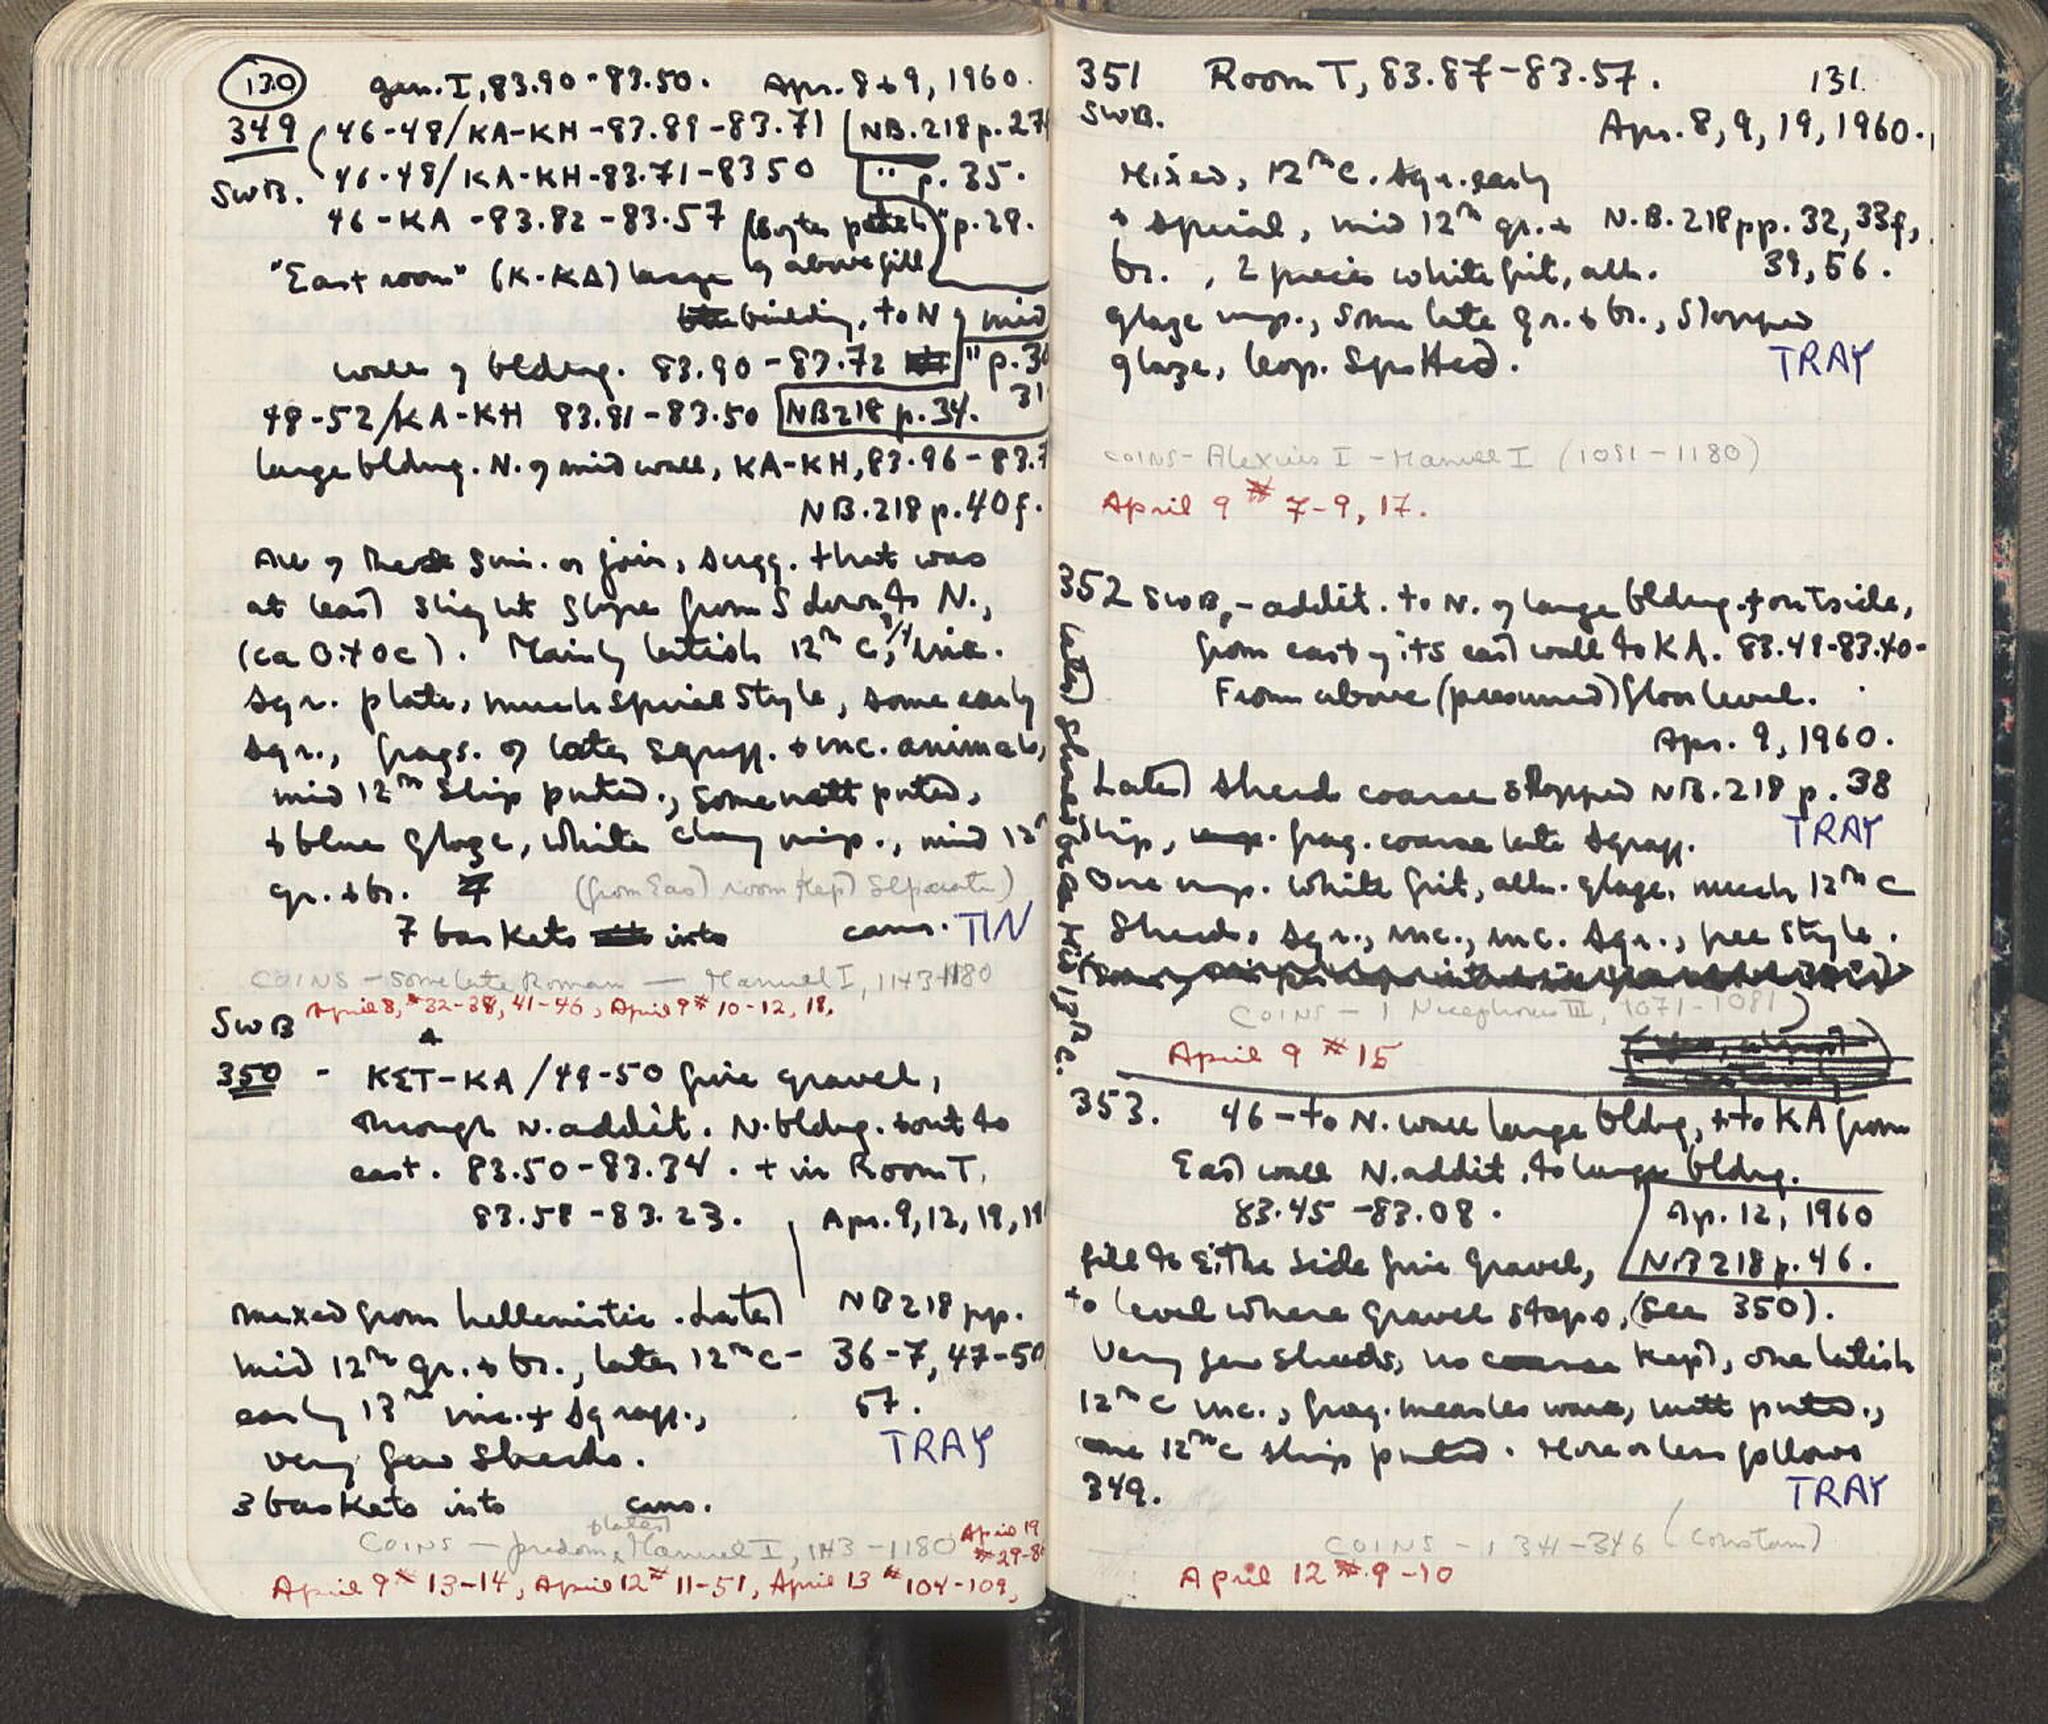 130
gen. I, 83.90-83.50. Apr. 8+9, 1960.
349 46-48/KA-KH-83.89-83.71 NB.218 p.27
46-48/KA-KH-83.71-8350 " p. 35.
SWB.
46-KA-83.82-83.57 " p.28.
"East room" (K-KA) large above fill
building, to N of mid
wall of bldng. 83.90-83.72 " p.3
31
48-52/KA-KH 83.81-83.50 NB218 p.34.
large bldng. N. of mid wall, KA-KH, 83.96-83.7
NB.218 p.40f.
All of these sim. or join, sugg. that was
at least slight slope from S down to N.,
(ca 0.40c). Mainly latish 12th C, inc.
sgr. plate, much spiral style, some early
sgr., frags. of later sgraff. + inc. animals,
mid 12th slip pnted., some matt pnted,
+ blue glaze, white clay imp., mid 12
gr. + br. (from East room kept separate)
7 baskets into cans. TIN
COINS - some late Roman - Manuel I, 1143-1180
SWB April 8, #32-38, 41-46, April 9 # 10-12, 18.
350 - KET-KA/49-50 fine gravel,
through N. addit. N. bldng. + out to
east. 83.50-83.34. + in Room T,
83.58-83.23. Apr. 9, 12, 19, 19
mixed from hellenistic. Latest NB218 pp.
mid 12th gr. + br., later 12th C- 36-7, 47-50
early 13th inc. + sgraff., 57.
very few sherds. TRAY
3 baskets into cans.
+ latest
COINS - predom. Manuel I, 1143-1180 April 19
#29-8
April 9 # 13-14, April 12 # 11-51, April 13 # 104-109,
351 Room T, 83.87-83.57. 131.
SWB. Apr. 8, 9, 19, 1960.
Mixed, 12th C. sgr. early
+ spiral, mid 12th gr. + N.B. 218 pp. 32, 33f,
br., 2 pieces white grit, alk. 39, 56.
glaze imp., some late gr. + br., slopped
glaze, leop. spotted. TRAY
COINS - Alexius I - Manuel I (1081-1180)
April 9 # 7-9, 17.
352 SWB, - addit. to N. of large bldng. + outside,
from east of its east wall to KA. 83.49-83.40-
From above (presumed) floor level.
Apr. 9, 1960.
Latest sherd coarse slopped NB.218 p.38
slip, frag. coarse late sgraff. TRAY
One imp. white grit, alk. glaze. much 12th C
sherds, sgr., inc., inc. sgr., free style.
latest
COINS - 1 Nicephorus III, 1071-1081)
April 9 # 15
353. 46-to N. wall large bldng, + to KA from
East wall N. addit. to large bldng.
83.45-83.08. Ap. 12, 1960
fill to either side fine gravel, NB218 p.46.
to level where gravel stops, (see 350).
Very few sherds, no coarse kept, one latish
12th C inc., frag. measles ware, matt pnted.,
one 12th C slip pnted. More or less follows
349. TRAY
COINS - 1 341-346 (Constans)
April 12 # 9-10